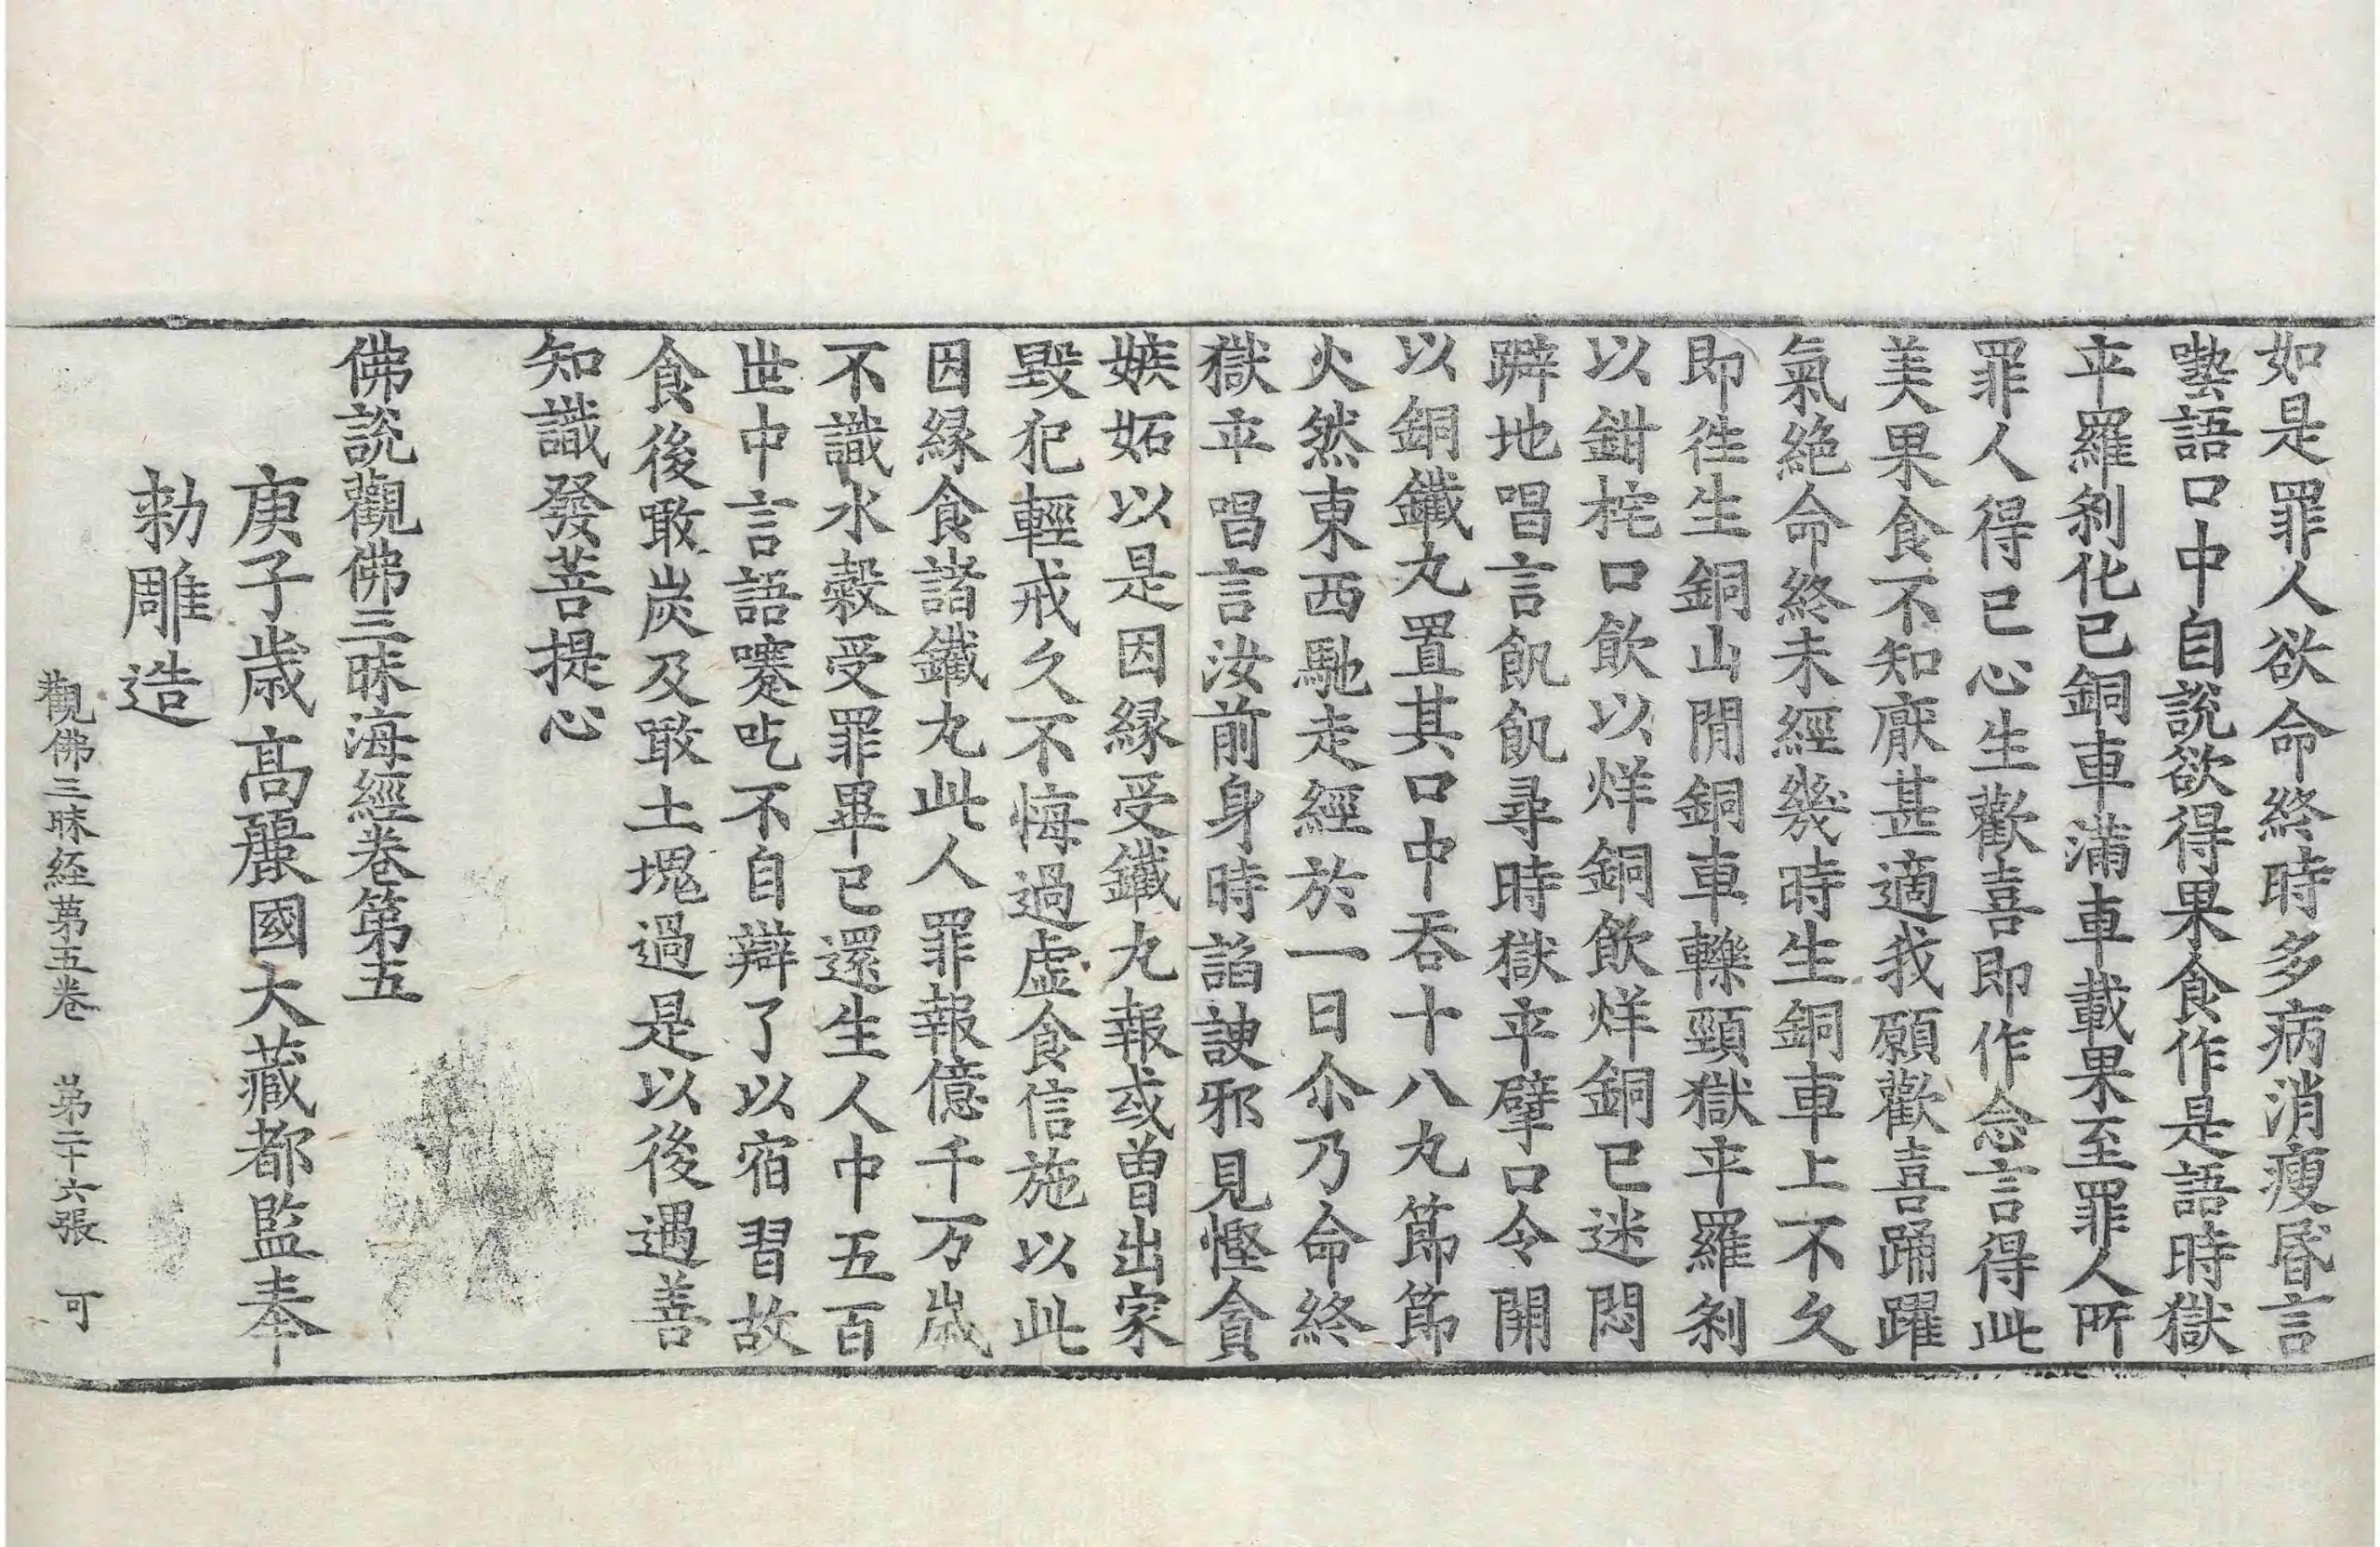 如是罪人欲命終時多病消瘦昬言
囈語口中自說欲得果食作是語時獄
卒羅刹化已銅車滿車載果至罪人所
罪人得已心生歡喜即作念言得此
美果食不知厭甚適我願歡喜踊躍
氣絶命終未經幾時生銅車上不久
即徃生銅山間銅車轢頸獄卒羅刹
以鉗挓口飲以烊銅飲烊銅已迷悶
躃地唱言飢飢尋時獄卒擘口令開
以銅鐵丸置其口中吞十八丸節節
火然東西馳走經於一日尒乃命終
獄卒唱言汝前身時諂諛邪見慳貪
嫉妬以是因縁受鐵丸報或曽出家
毀犯輕戒久不悔過虛食信施以此
因縁食諸鐵丸此人罪報億千万歳
不識水穀受罪畢已還生人中五百
世中言語蹇吃不自辯了以宿習故
食後噉炭及噉土塊過是以後遇善
知識發菩提心
佛說觀佛三昧海經卷第五
庚子歳高麗國大藏都監奉
勑雕造
觀佛三昧經第五卷 第二十六張 可